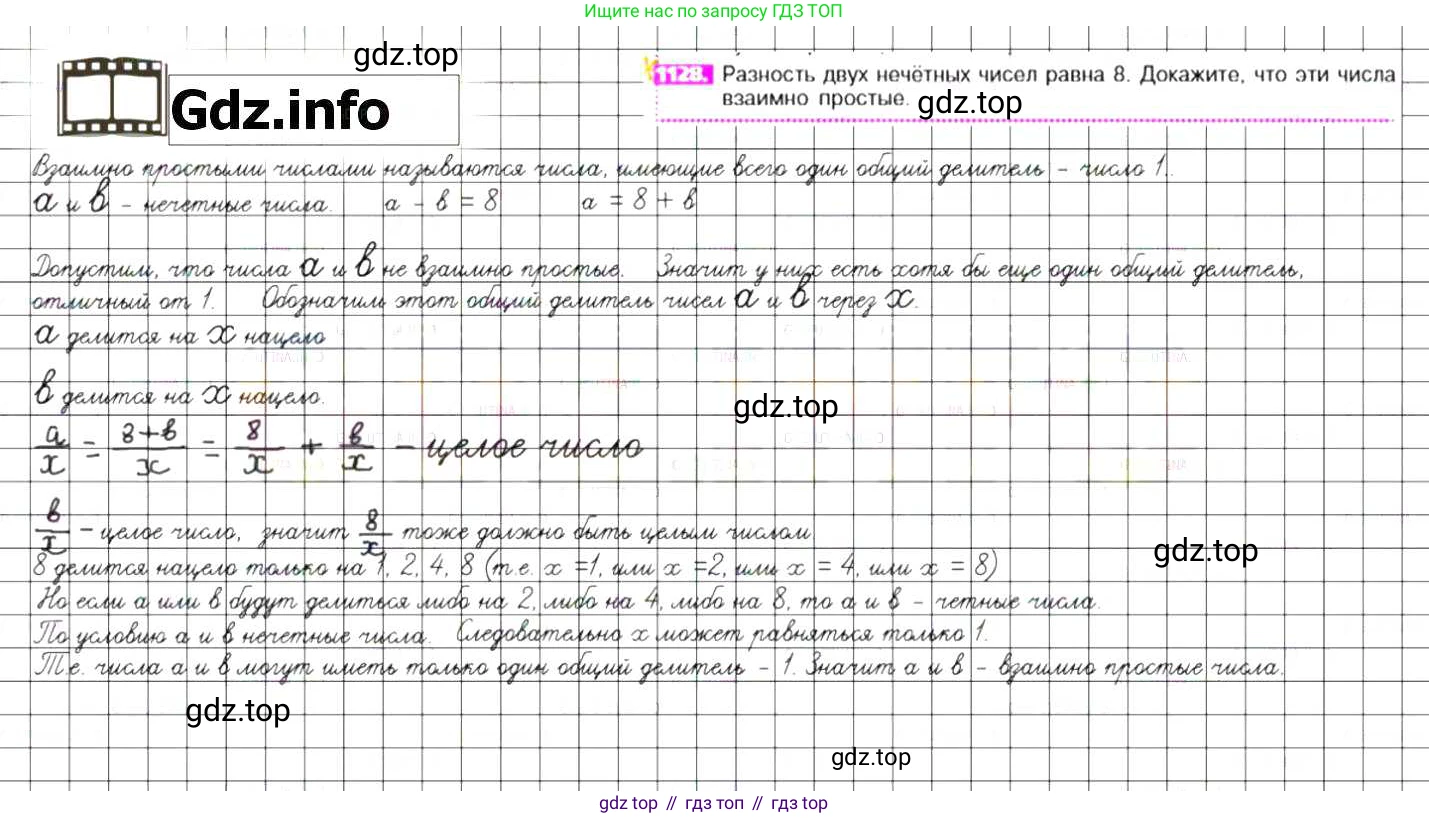 Ищите нас по запросу ГДЗ ТОП
gdz.top
Gdz.info
1128. Разность двух нечётных чисел равна 8. Докажите, что эти числа
взаимно простые.
gdz.top
Взаимно простыми числами называются числа, имеющие всего один общий делитель - число 1.
а и в - нечетные числа. а - в = 8 а = 8 + в
Допустим, что числа а и в не взаимно простые. Значит у них есть хотя бы еще один общий делитель,
отличный от 1. Обозначим этот общий делитель чисел а и в через х.
а делится на х нацело
в делится на х нацело.
gdz.top
а/х = 8+в/х = 8/х + в/х - целое число
в/х - целое число, значит 8/х тоже должно быть целым числом.
gdz.top
8 делится нацело только на 1, 2, 4, 8 (т.е. х =1, или х =2, или х = 4, или х = 8)
Но если а или в будут делиться либо на 2, либо на 4, либо на 8, то а и в - четные числа.
По условию а и в нечетные числа. Следовательно х может равняться только 1.
Т.е. числа а и в могут иметь только один общий делитель - 1. Значит а и в - взаимно простые числа.
gdz.top
gdz.top
gdz top // гдз топ // gdz top